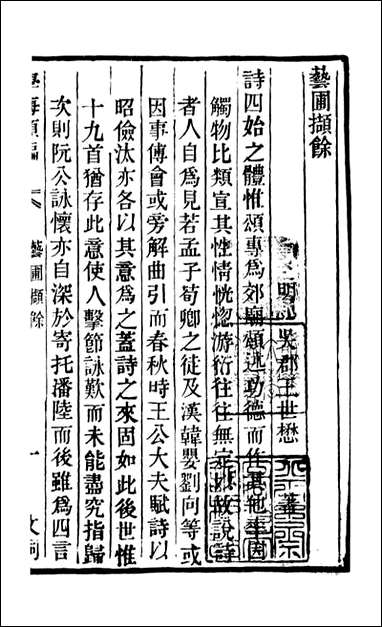 藝圃擷餘
明 吳郡王世懋 著
詩四始之體惟頌專為郊廟頌述功德而作其他率因
觸物比類宣其性情恍惚游衍往往無定以故說詩
者人自為見若孟子荀卿之徒及漢韓嬰劉向等或
因事傅會或旁解曲引而春秋時王公大夫賦詩以
昭儉汰亦各以其意為之蓋詩之來固如此後世惟
十九首猶存此意使人擊節詠歎而未能盡究指歸
次則阮公詠懷亦自深於寄托潘陸而後雖為四言
學海類編 藝圃擷餘 一